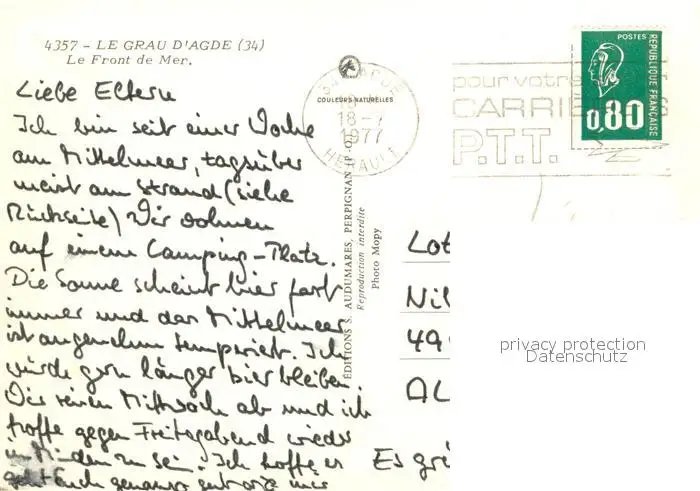 4357 - LE GRAU D'AGDE (34)
Le Front de Mer.
Liebe Eltern
Ich bin seit einer Woche
am Mittelmeer, tagsüber
meist am Strand (siehe
Rückseite) Wir wohnen
auf einem Camping-Platz.
Die Sonne scheint hier fast
immer und das Mittelmeer
ist angenehm temperiert. Ich
würde gern länger hier bleiben.
Wir reisen Mittwoch ab und ich
hoffe gegen Freitagabend wieder
in Minden zu sein. Ich hoffe es
geht Euch genauso gut wie mir
COULEURS NATURELLES
18-7
1977
HERAULT
pour votre
CARRIÈ
P.T.T.
POSTES
REPUBLIQUE FRANÇAISE
0,80
EDITIONS S. AUDUMARES, PERPIGNAN (P.-O.)
Reproduction interdite
Photo Mopy
Lot
Nil
49
AL
Es grü
privacy protection
Datenschutz